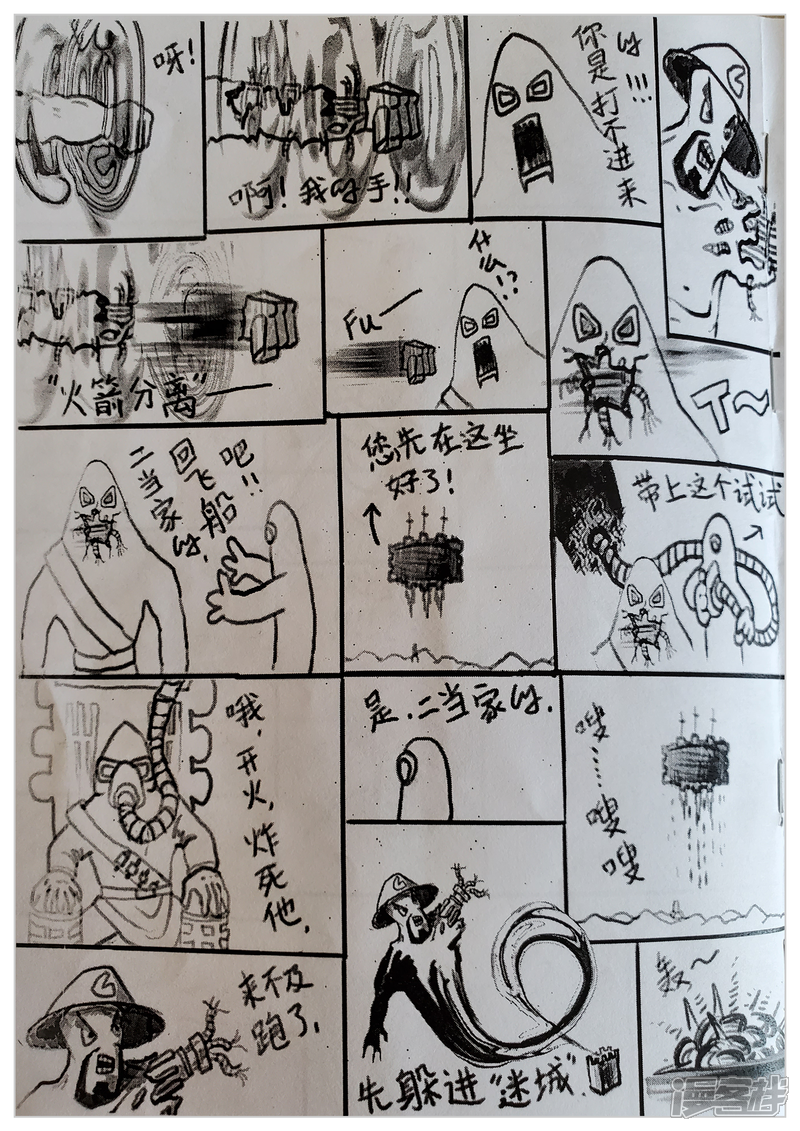 呀!
啊!我的手!!
你是打不进来的!!!
"火箭分离"
Fu
什么!?
T~
二当家的,
回飞船吧!!
您先在这坐
好了!
带上这个试试
哦,开火,炸死他,
是,二当家的,
嗖……嗖嗖
来不及
跑了,
先躲进"迷城"
轰~
漫客栈